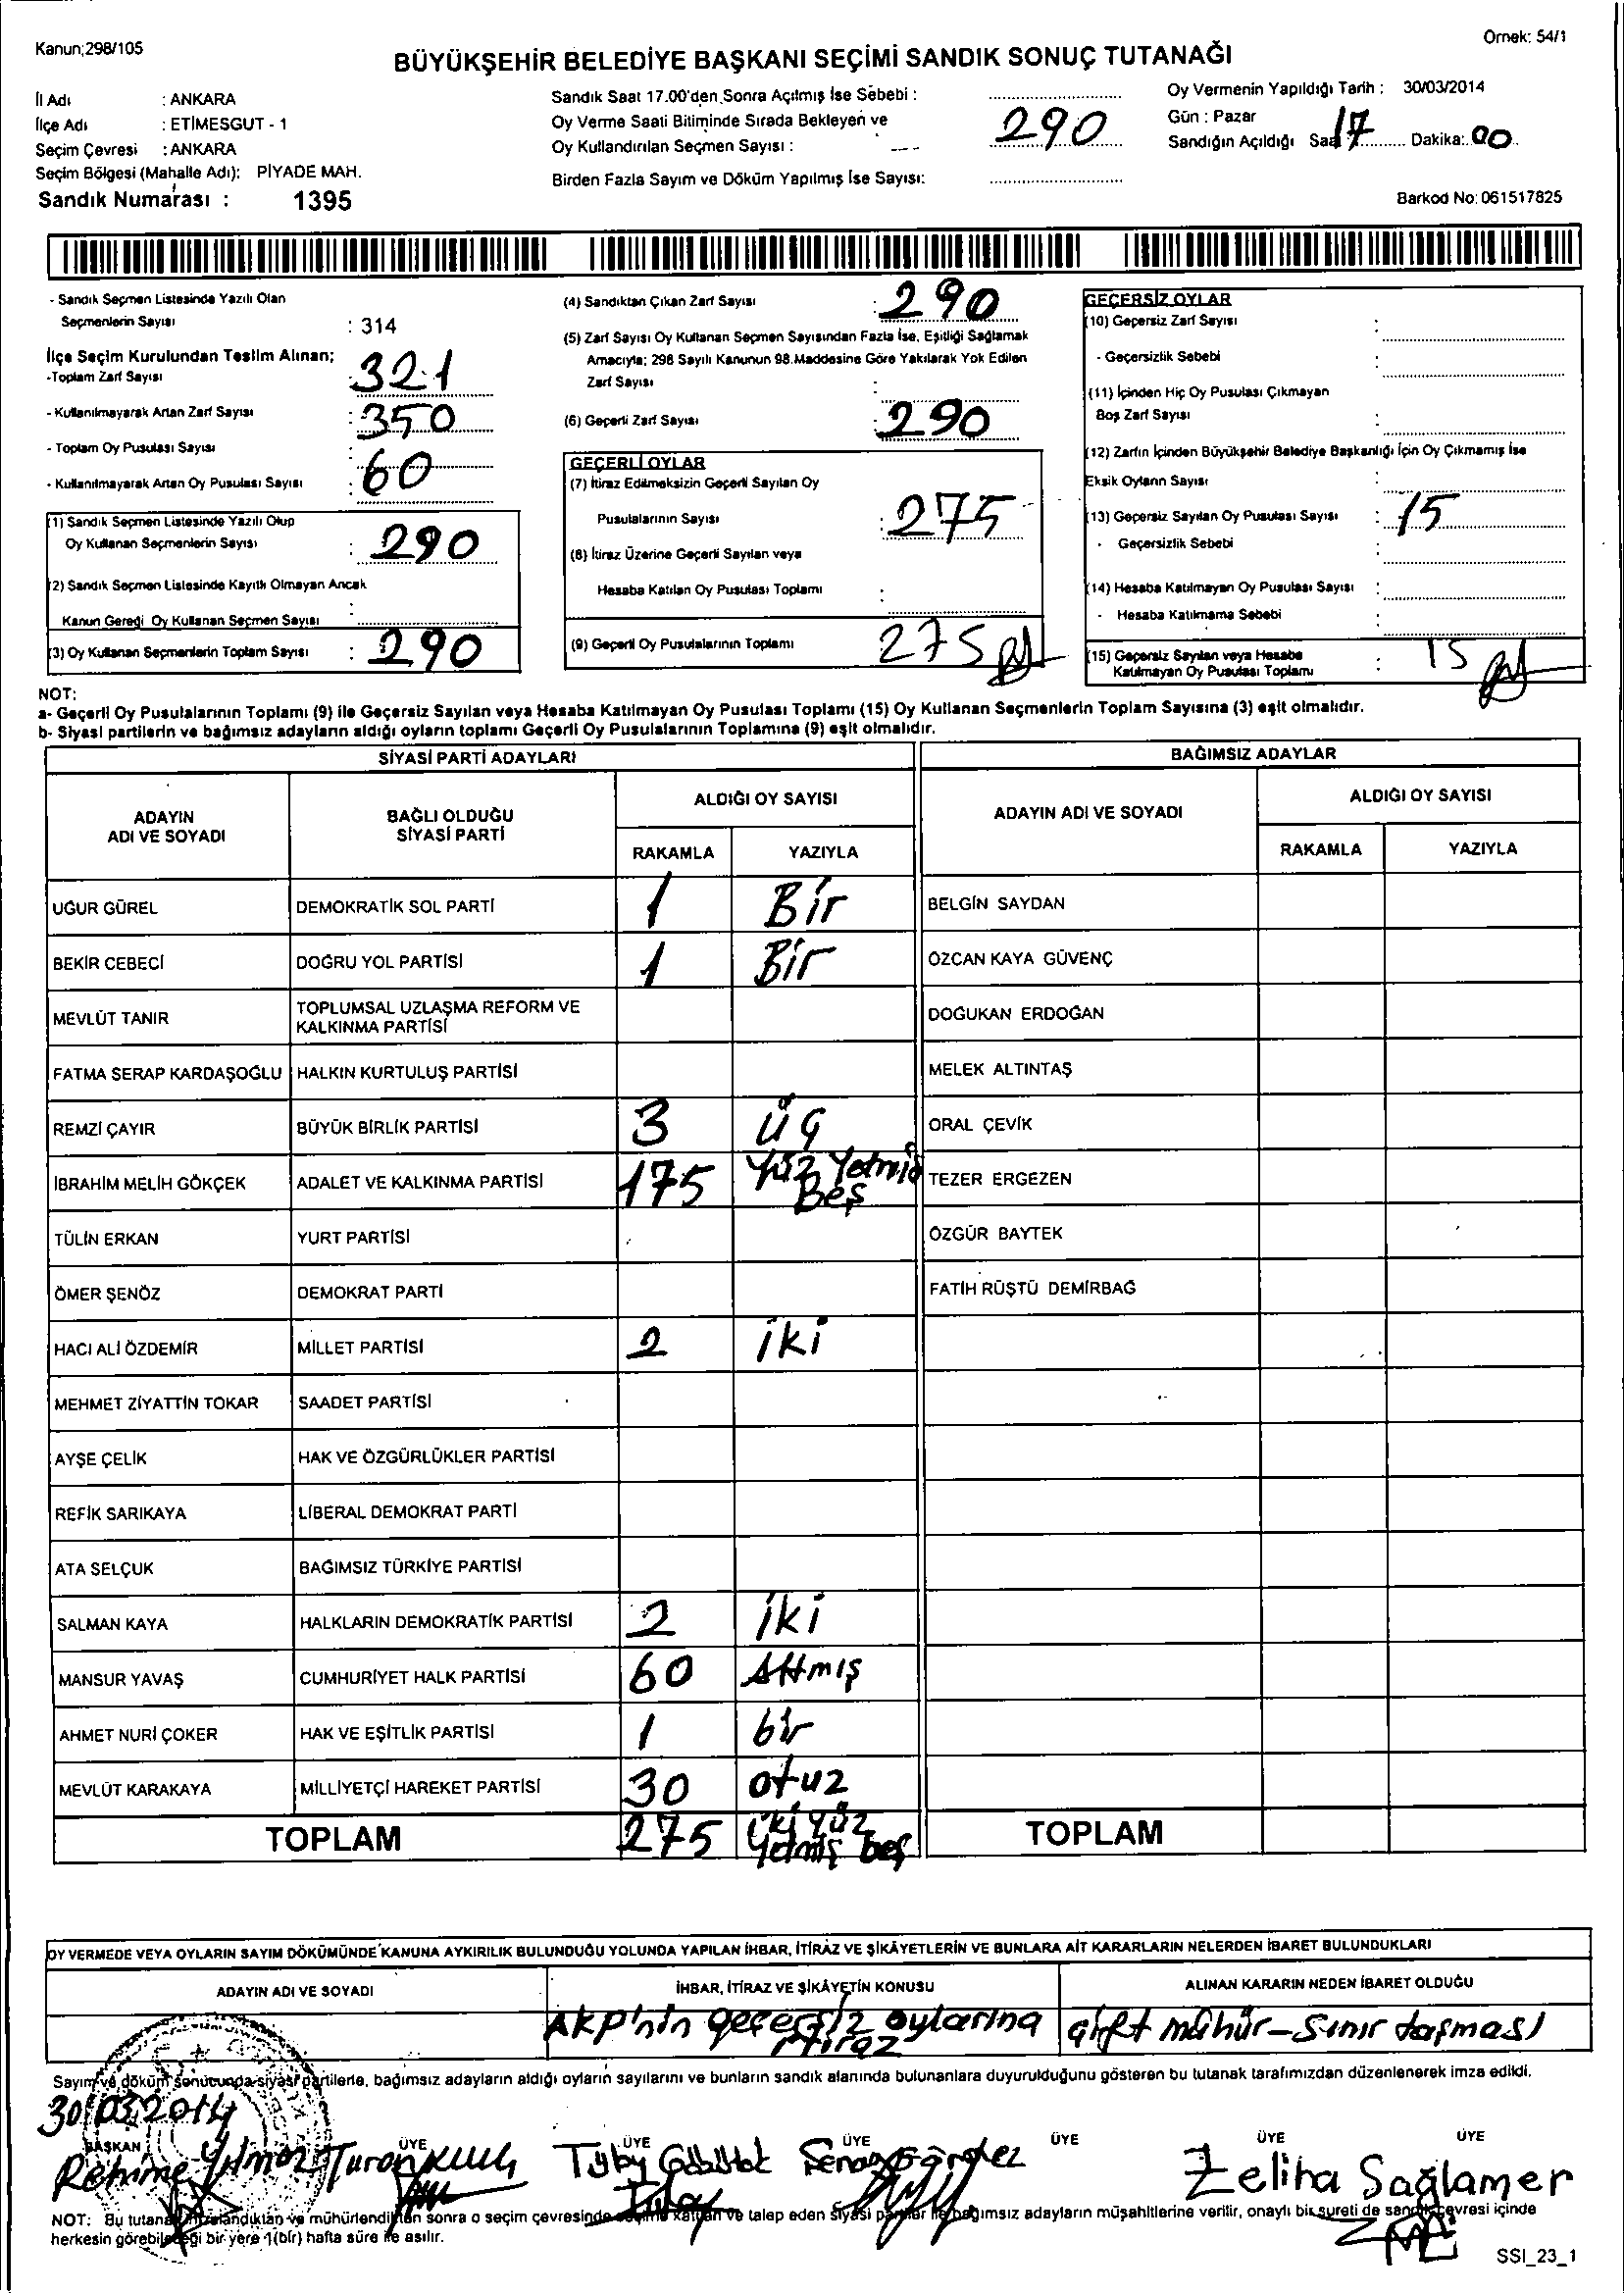 Kanun;298/105
Örnek: 54/1
BÜYÜKŞEHİR BELEDİYE BAŞKANI SEÇİMİ SANDIK SONUÇ TUTANAĞI
İl Adı : ANKARA
İlçe Adı : ETİMESGUT - 1
Seçim Çevresi : ANKARA
Seçim Bölgesi (Mahalle Adı): PİYADE MAH.
Sandık Numarası : 1395
Sandık Saat 17.00'den Sonra Açılmış İse Sebebi :
Oy Verme Saati Bitiminde Sırada Bekleyen ve
Oy Kullandırılan Seçmen Sayısı : 290
Birden Fazla Sayım ve Döküm Yapılmış İse Sayısı:
Oy Vermenin Yapıldığı Tarih : 30/03/2014
Gün : Pazar
Sandığın Açıldığı Saat 17 Dakika: 00
Barkod No: 061517825
- Sandık Seçmen Listesinde Yazılı Olan
Seçmenlerin Sayısı : 314
İlçe Seçim Kurulundan Teslim Alınan;
-Toplam Zarf Sayısı : 321
- Kullanılmayarak Artan Zarf Sayısı : 350
- Toplam Oy Pusulası Sayısı :
- Kullanılmayarak Artan Oy Pusulası Sayısı : 60
(1) Sandık Seçmen Listesinde Yazılı Olup
Oy Kullanan Seçmenlerin Sayısı : 290
(2) Sandık Seçmen Listesinde Kayıtlı Olmayan Ancak
Kanun Gereği Oy Kullanan Seçmen Sayısı :
(3) Oy Kullanan Seçmenlerin Toplam Sayısı : 290
(4) Sandıktan Çıkan Zarf Sayısı : 290
(5) Zarf Sayısı Oy Kullanan Seçmen Sayısından Fazla İse, Eşitliği Sağlamak
Amacıyla; 298 Sayılı Kanunun 98.Maddesine Göre Yakılarak Yok Edilen
Zarf Sayısı :
(6) Geçerli Zarf Sayısı : 290
GEÇERLİ OYLAR
(7) İtiraz Edilmeksizin Geçerli Sayılan Oy
Pusulalarının Sayısı : 275
(8) İtiraz Üzerine Geçerli Sayılan veya
Hesaba Katılan Oy Pusulası Toplamı :
(9) Geçerli Oy Pusulalarının Toplamı 275
GEÇERSİZ OYLAR
(10) Geçersiz Zarf Sayısı :
- Geçersizlik Sebebi :
(11) İçinden Hiç Oy Pusulası Çıkmayan
Boş Zarf Sayısı :
(12) Zarfın İçinden Büyükşehir Belediye Başkanlığı İçin Oy Çıkmamış İse
Eksik Oyların Sayısı :
(13) Geçersiz Sayılan Oy Pusulası Sayısı : 15
- Geçersizlik Sebebi :
(14) Hesaba Katılmayan Oy Pusulası Sayısı :
- Hesaba Katılmama Sebebi :
(15) Geçersiz Sayılan veya Hesaba
Katılmayan Oy Pusulası Toplamı : 15
NOT:
a- Geçerli Oy Pusulalarının Toplamı (9) ile Geçersiz Sayılan veya Hesaba Katılmayan Oy Pusulası Toplamı (15) Oy Kullanan Seçmenlerin Toplam Sayısına (3) eşit olmalıdır.
b- Siyasi partilerin ve bağımsız adayların aldığı oyların toplamı Geçerli Oy Pusulalarının Toplamına (9) eşit olmalıdır.
SİYASİ PARTİ ADAYLARI
BAĞIMSIZ ADAYLAR
ADAYIN ADI VE SOYADI
BAĞLI OLDUĞU SİYASİ PARTİ
ALDIĞI OY SAYISI
RAKAMLA YAZIYLA
ADAYIN ADI VE SOYADI
ALDIĞI OY SAYISI
RAKAMLA YAZIYLA
UĞUR GÜREL DEMOKRATİK SOL PARTİ 1 Bir BELGİN SAYDAN
BEKİR CEBECİ DOĞRU YOL PARTİSİ 1 Bir ÖZCAN KAYA GÜVENÇ
MEVLÜT TANIR TOPLUMSAL UZLAŞMA REFORM VE KALKINMA PARTİSİ DOĞUKAN ERDOĞAN
FATMA SERAP KARDAŞOĞLU HALKIN KURTULUŞ PARTİSİ MELEK ALTINTAŞ
REMZİ ÇAYIR BÜYÜK BİRLİK PARTİSİ 3 üç ORAL ÇEVİK
İBRAHİM MELİH GÖKÇEK ADALET VE KALKINMA PARTİSİ 175 Yüz Yetmiş Beş TEZER ERGEZEN
TÜLİN ERKAN YURT PARTİSİ ÖZGÜR BAYTEK
ÖMER ŞENÖZ DEMOKRAT PARTİ FATİH RÜŞTÜ DEMİRBAĞ
HACI ALİ ÖZDEMİR MİLLET PARTİSİ 2 iki
MEHMET ZİYATTİN TOKAR SAADET PARTİSİ
AYŞE ÇELİK HAK VE ÖZGÜRLÜKLER PARTİSİ
REFİK SARIKAYA LİBERAL DEMOKRAT PARTİ
ATA SELÇUK BAĞIMSIZ TÜRKİYE PARTİSİ
SALMAN KAYA HALKLARIN DEMOKRATİK PARTİSİ 2 iki
MANSUR YAVAŞ CUMHURİYET HALK PARTİSİ 60 Altmış
AHMET NURİ ÇOKER HAK VE EŞİTLİK PARTİSİ 1 bir
MEVLÜT KARAKAYA MİLLİYETÇİ HAREKET PARTİSİ 30 otuz
TOPLAM 275 iki yüz yetmiş beş TOPLAM
OY VERMEDE VEYA OYLARIN SAYIM DÖKÜMÜNDE KANUNA AYKIRILIK BULUNDUĞU YOLUNDA YAPILAN İHBAR, İTİRAZ VE ŞİKÂYETLERİN VE BUNLARA AİT KARARLARIN NELERDEN İBARET BULUNDUKLARI
ADAYIN ADI VE SOYADI İHBAR, İTİRAZ VE ŞİKÂYETİN KONUSU ALINAN KARARIN NEDEN İBARET OLDUĞU
AKP'nin geçersiz oylarına itiraz çift mühür-sınır taşması
Sayım ve döküm sonucunda siyasi partilerle, bağımsız adayların aldığı oyların sayılarını ve bunların sandık alanında bulunanlara duyurulduğunu gösteren bu tutanak tarafımızdan düzenlenerek imza edildi.
30/03/2014
BAŞKAN ÜYE ÜYE ÜYE ÜYE ÜYE ÜYE
Rahime Yılmaz Turan Zeliha Sağlamer
NOT: Bu tutanak imzalandıktan ve mühürlendikten sonra o seçim çevresinde seçime katılan ve talep eden siyasi partiler ile bağımsız adayların müşahitlerine verilir, onaylı bir sureti de sandık çevresi içinde
herkesin görebileceği bir yere 1(bir) hafta süre ile asılır.
SSI_23_1